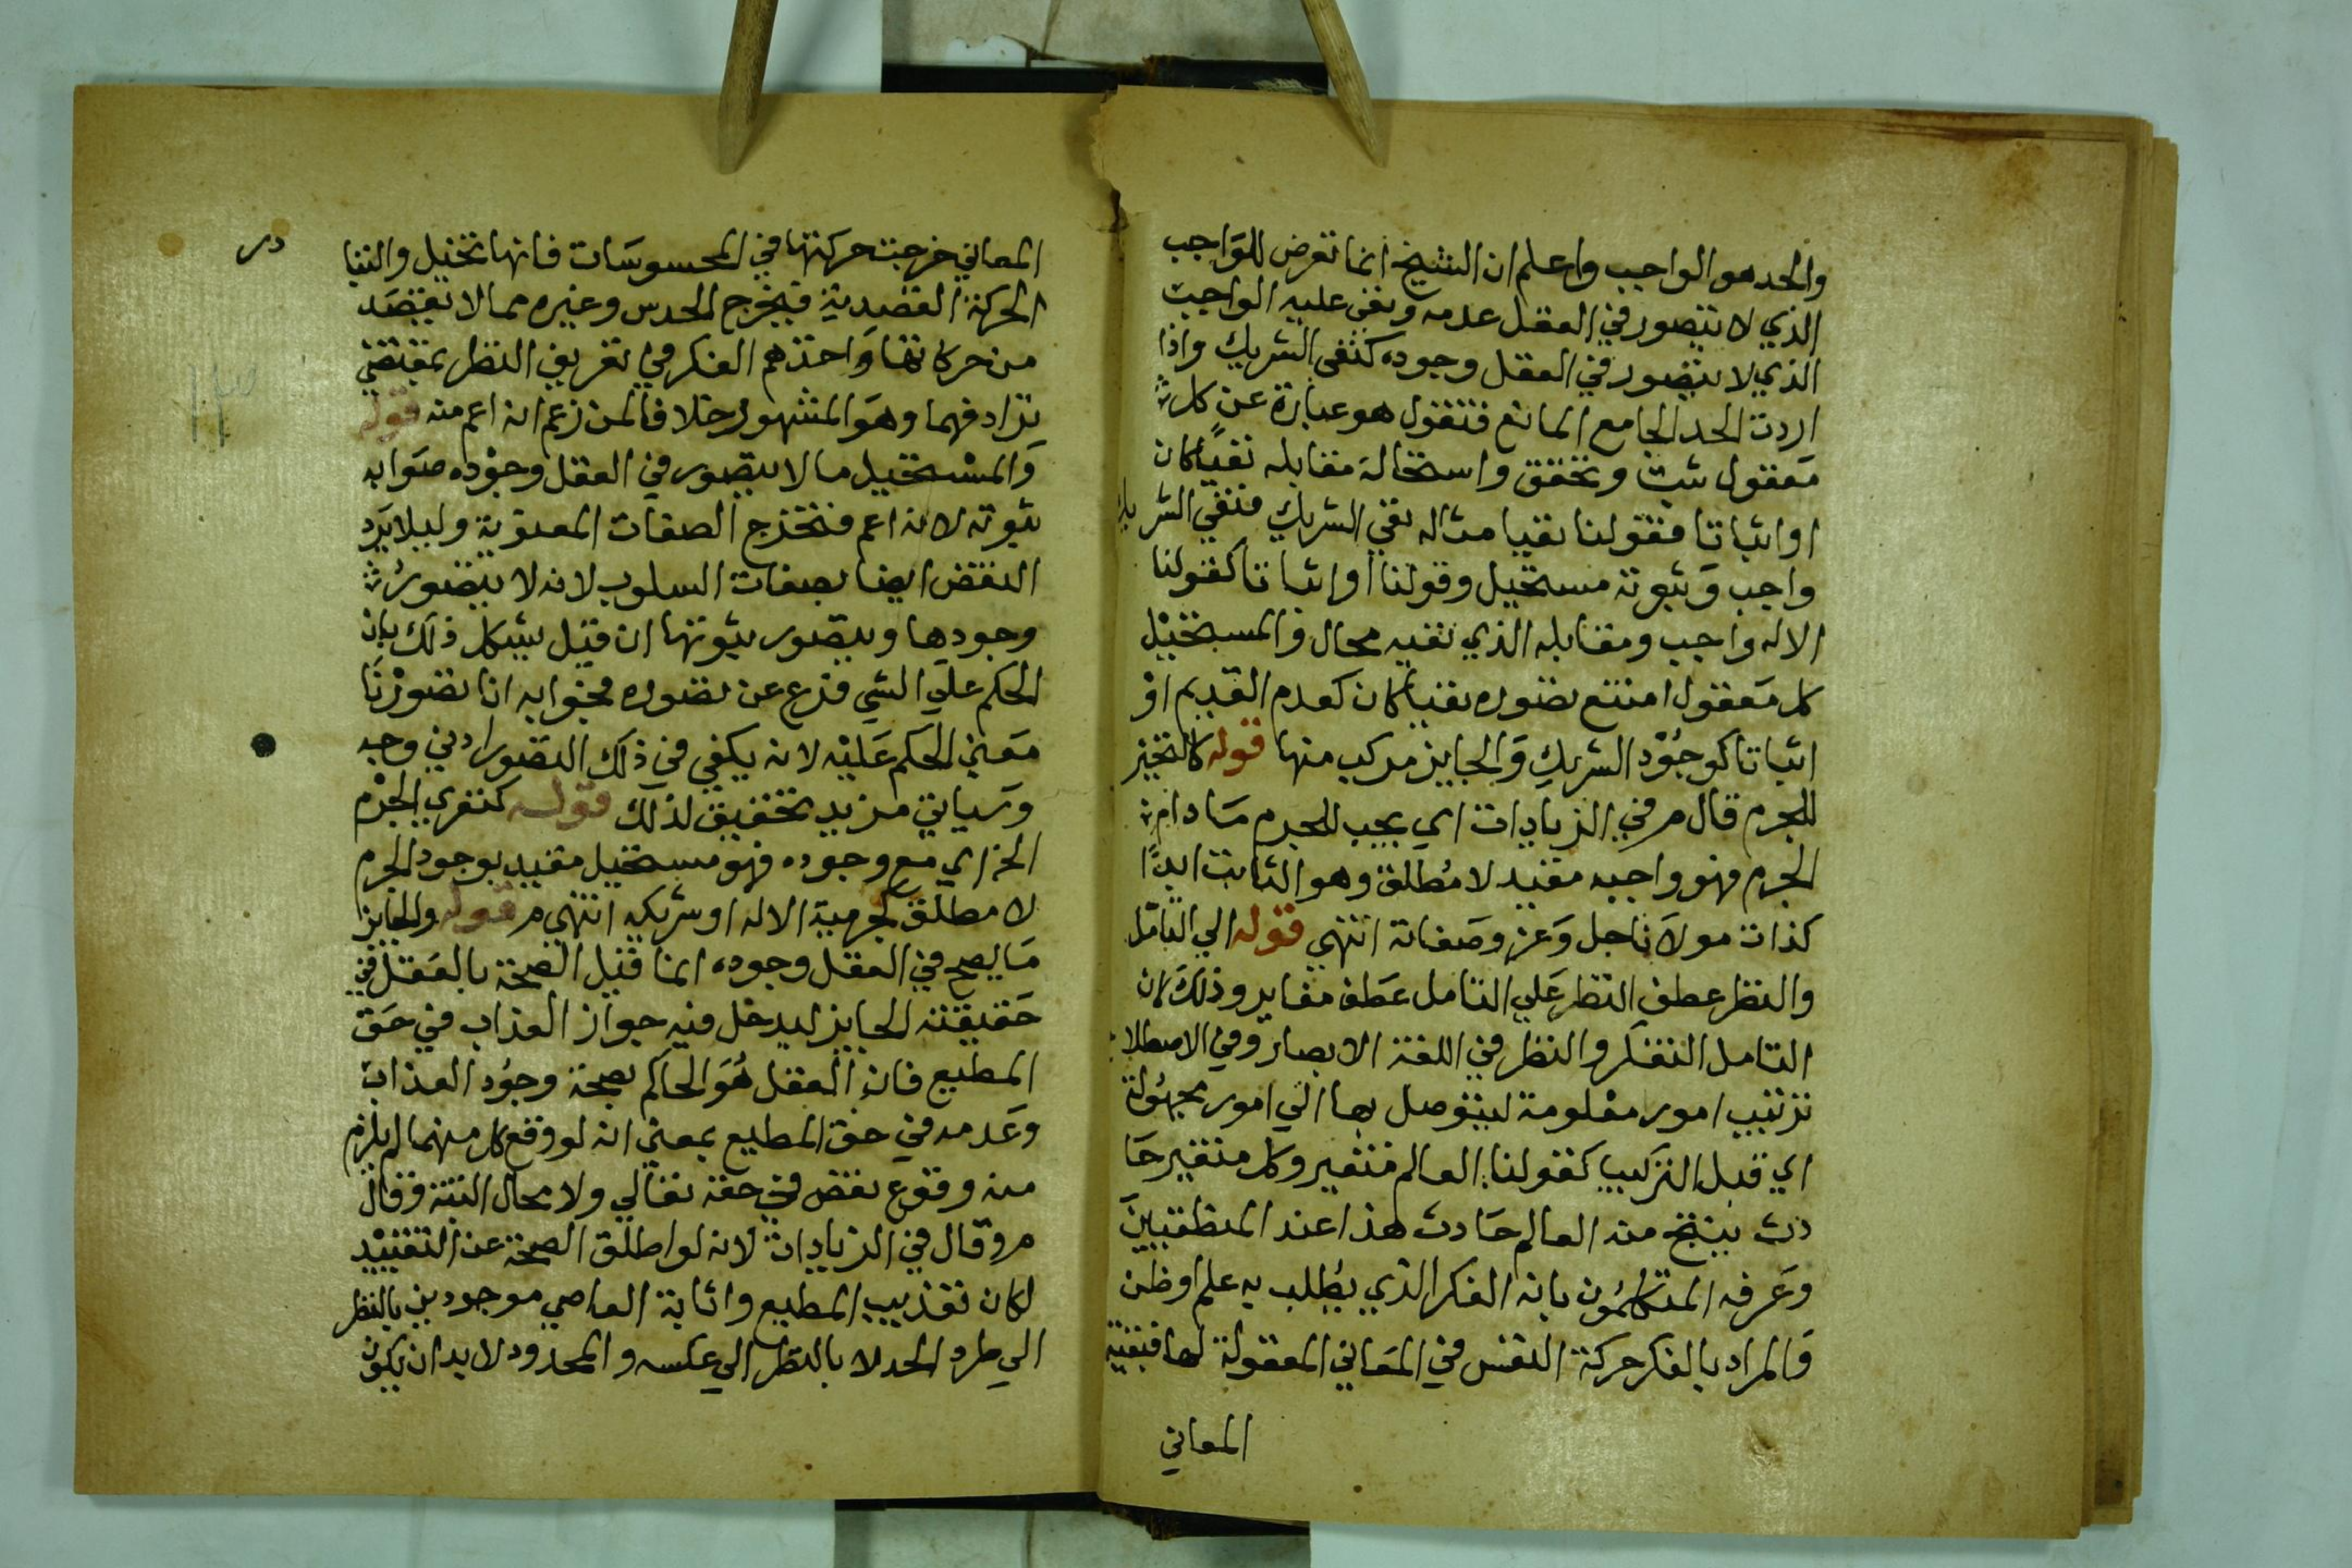 والحد هو الواجب واعلم ان الشيخ انما تعرض للواجب
الذي لا يتصور في العقل عدمه وبقى عليه الواجب
الذي لا يتصور في العقل وجوده كنفى الشريك واذا
اردت الحد الجامع المانع فتقول هو عبارة عن كل
معقول ثبت وتحقق واستحالة مقابله نفيا كان
او اثباتا فقولنا نفيا مثاله نفي الشريك فنفي الشريك
واجب وثبوته مستحيل وقولنا او اثباتا كقولنا
الاله واجب ومقابله الذي نفيه محال والمستحيل
كل معقول امتنع تصوره نفيا كان كعدم القديم او
اثباتا كوجود الشريك والجايز مركب منها قوله كالتحيز
للجرم قال م في الزيادات اي يجب للجرم ما دام
الجرم فهو واجبه مقيد لا مطلق وهو الثابت ابدا
كذات مولانا جل وعز وصفاته انتهى قوله الي التامل
والنظر عطف النظر على التامل عطف مغاير وذلك لان
التامل التفكر والنظر في اللغة الابصار وفي الاصطلاح
ترتيب امور معلومة ليتوصل بها الى امور مجهولة
اي قبل التركيب كقولنا العالم متغير وكل متغير حا
دث ينتج منه العالم حادث هذا عند المنطقيين
وعرفه المتكلمون بانه الفكر الذي يطلب به علم او ظن
والمراد بالفكر حركة النفس في المعاني المعقولة لها فبقيد
المعاني
المعاني خرجت حركتها في المحسوسات فانها تخيل والتيا
در
الحركة القصدية فيخرج الحدس وغيره مما لا تقصد
من حركاتها واحتذهم الفكر في تعريف النظر بمقتضي
ترادفهما وهو المشهور خلافا لمن زعم انه اعم منه قوله
والمستحيل ما لا يتصور في العقل وجوده صوابه
ثبوته لانه اعم فتخرج الصفات المعنوية وليلا يرد
النقض ايضا بصفات السلوب لانه لا يتصور
وجودها ويتصور ثبوتها ان قيل يشكل ذلك بان
الحكم على الشي فرع عن تصوره فجوابه انا تصورنا
معنى الحكم عليه لانه يكفي في ذلك التصور ادني وجه
وسياتي مزيد تحقيق لذلك قوله كتعري الجرم
الخ اي مع وجوده فهو مستحيل مقيد بوجود الجرم
لا مطلق كجرمية الاله او شريكه انتهى م قوله والجايز
ما يصح في العقل وجوده انما قيل الصحة بالعقل في
حقيقته الجايز ليدخل فيه جواز العذاب في حق
المطيع فان العقل هو الحاكم بصحة وجود العذاب
وعدمه في حق المطيع بمعني انه لو وقع كل منهما لم يلزم
منه وقوع نقض في حقه تعالي ولا محال البتة وقال
م وقال في الزيادات لانه لو اطلق الصحة عن التقييد
لكان تعذيب المطيع واثابة العاصي موجودين بالنظر
الي طرد الحد لا بالنظر الي عكسه والمحدود لا بد ان يكون